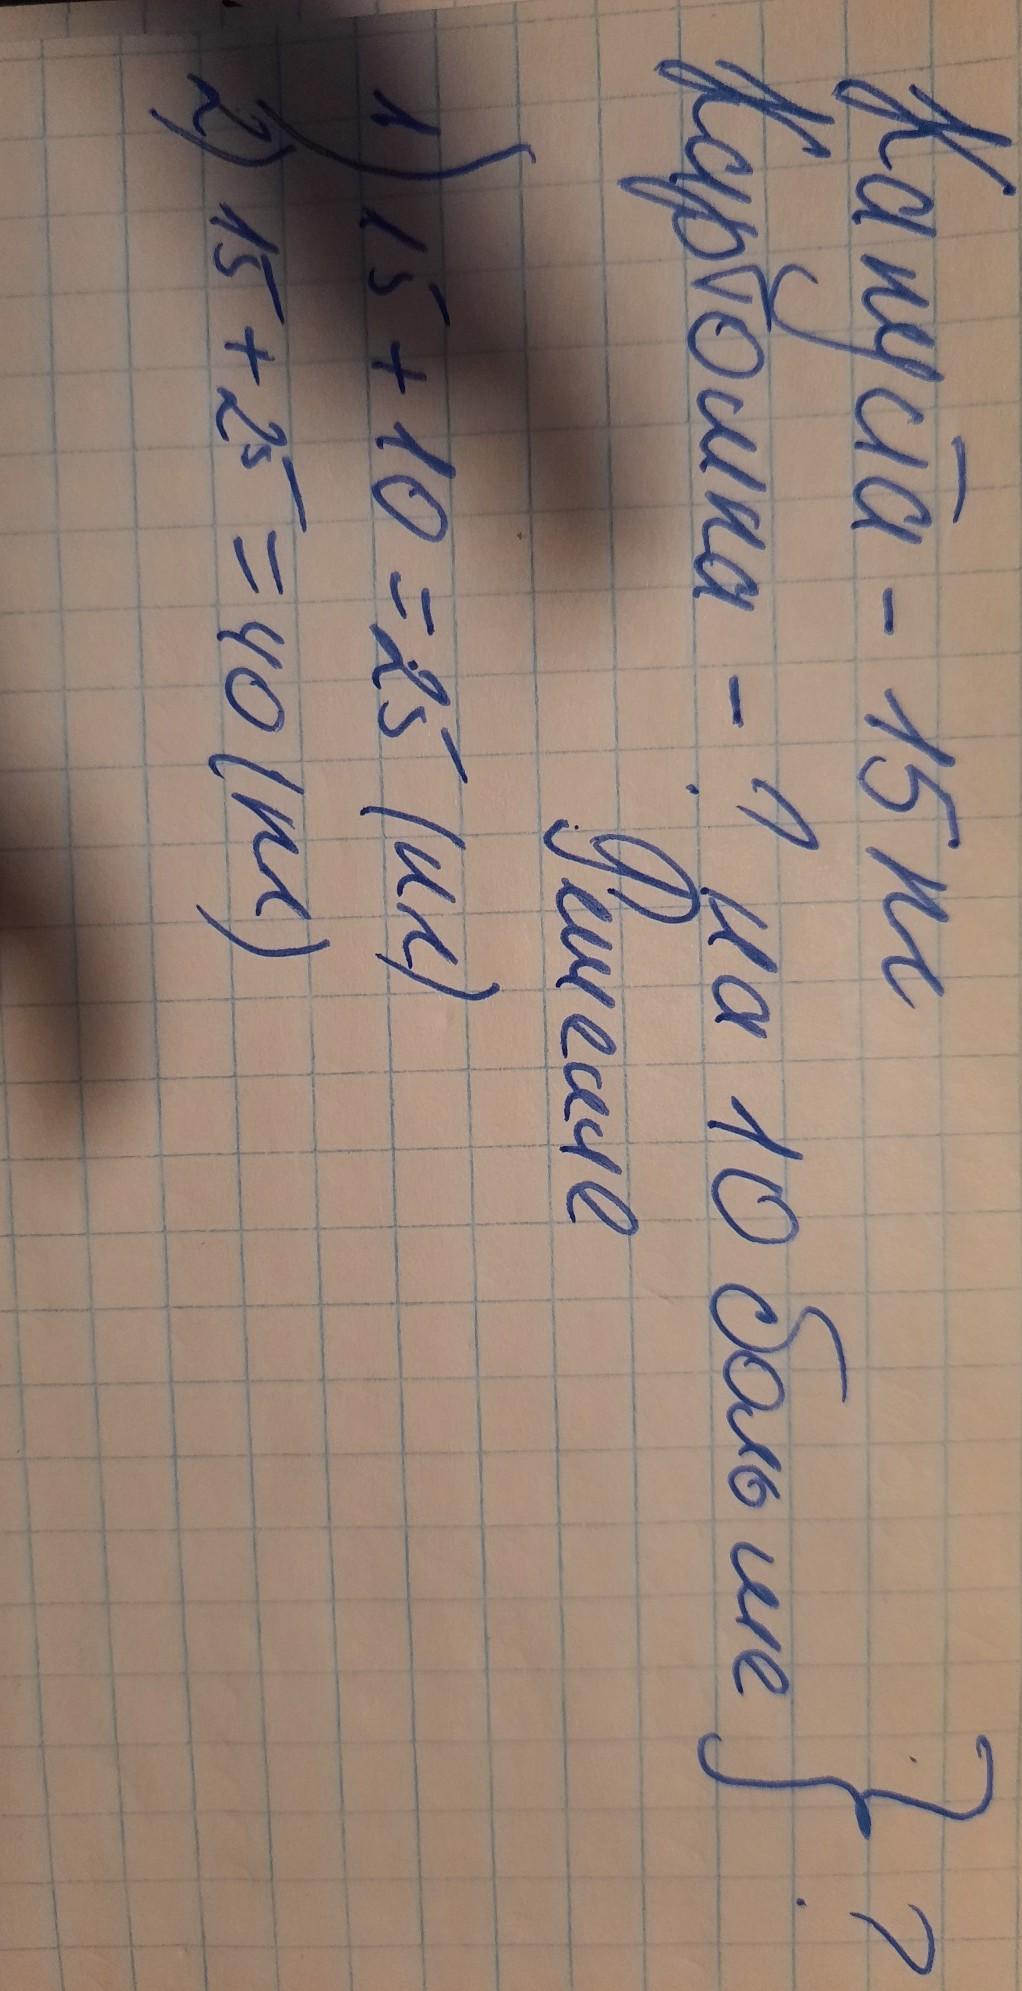 Капуста - 15 п
Картошка - ? на 10 больше } ?
Решение
1) 15 + 10 = 25 (п)
2) 15 + 25 = 40 (п)